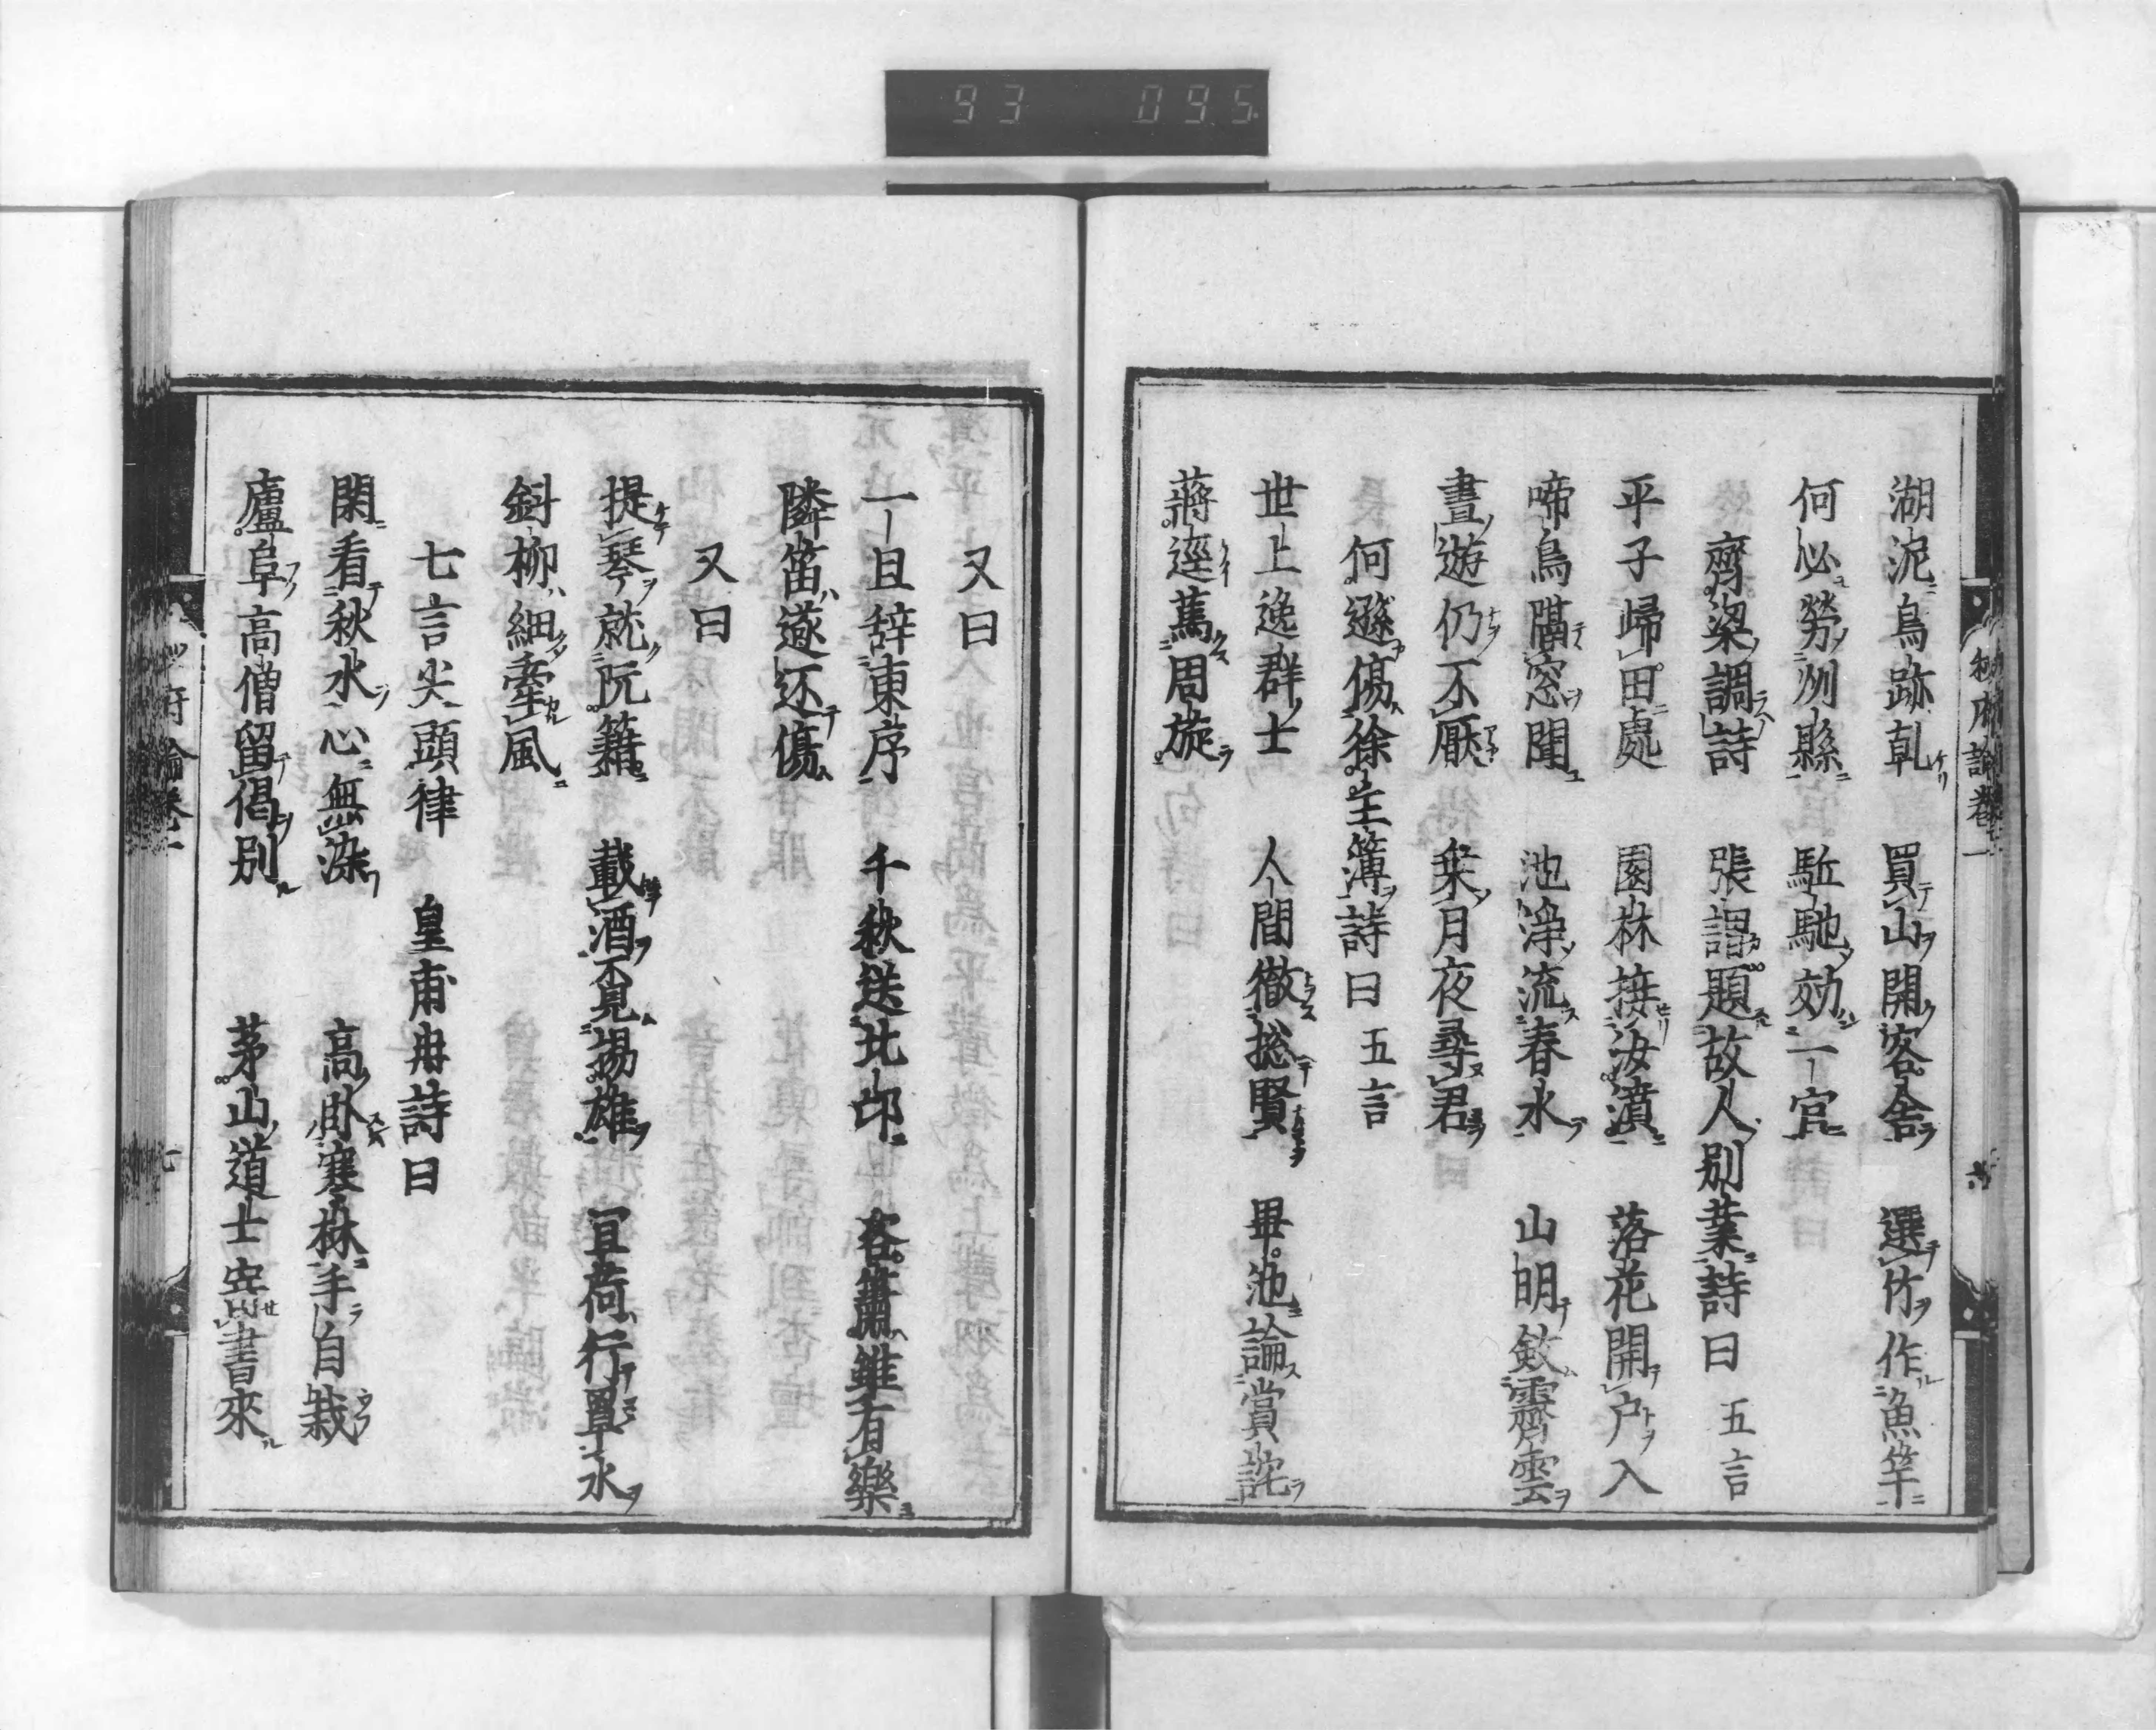 93 095
湖泥鳥跡乹 買山開客舎 選竹作魚竿
何必勞州縣 駈馳効一官
齊梁調詩 張謂題故人別業詩曰 五言
平子歸田處 園林接汝濆 落花開户入
啼鳥隔窓聞 池浄流春水 山明斂霽雲
晝遊仍不厭 乗月夜尋君
何遜傷徐主簿詩曰 五言
世上逸群士 人間徹総賢 畢池論賞詫
蔣逕篤周旋
又曰
一旦辞東序 千秋送北邙 客簫雖有樂
隣笛遂还傷
又曰
提琴就阮籍 載酒覓揚雄 直荷行罩水
斜柳細牽風
七言尖頭律 皇甫冉詩曰
閑看秋水心無染 高卧寒林手自栽
廬阜高僧留偈別 茅山道士寄書來